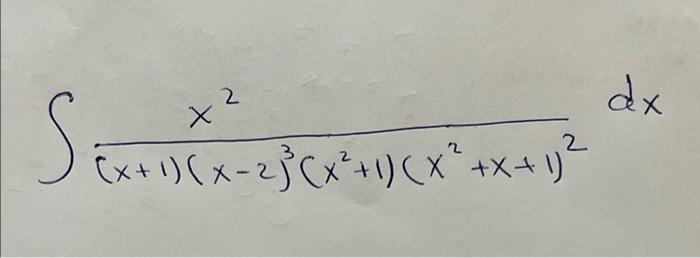 ∫ x² / (x+1)(x-2)³(x²+1)(x²+x+1)² dx